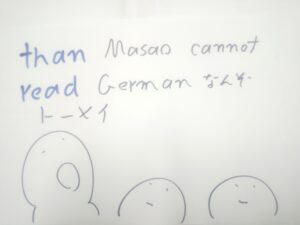 than Masao cannot
read German なんや
トーメイ